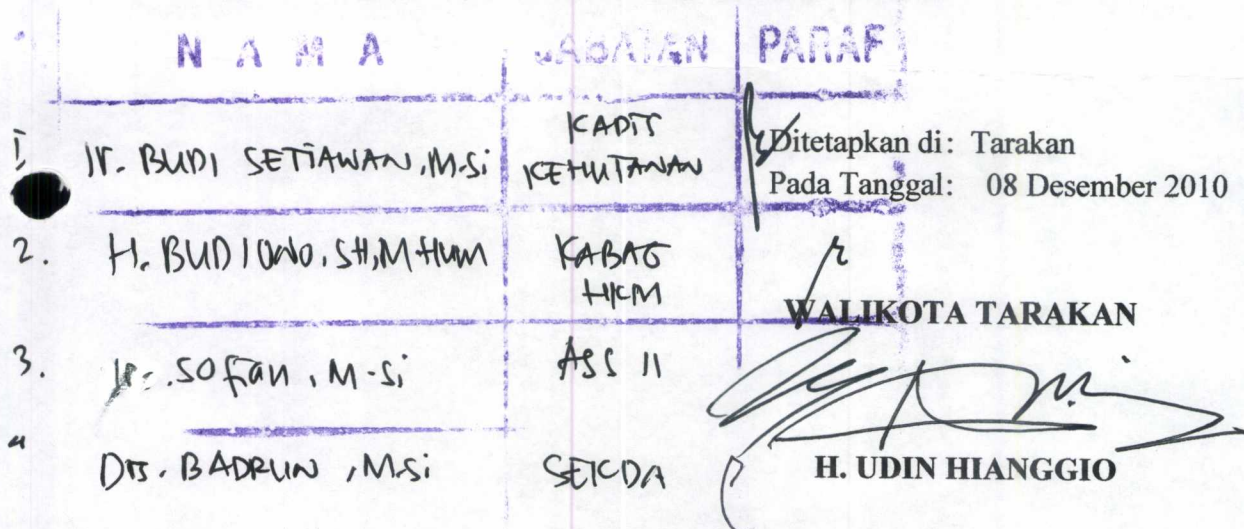 NAMA JABATAN PARAF
1. Ir. BUDI SETIAWAN, M.Si KADIS KEHUTANAN
2. H. BUDIONO, SH, M HUM KABAG HKM
3. Ir. SOFian, M.Si ASS II
4 DRS. BADRUN, M.Si SEKDA
Ditetapkan di: Tarakan
Pada Tanggal: 08 Desember 2010
WALIKOTA TARAKAN
H. UDIN HIANGGIO